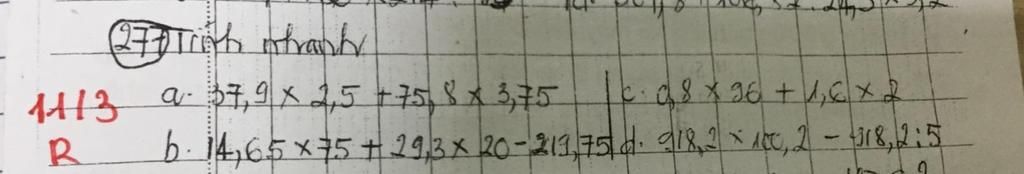 277 Tính nhanh
11/3 a. 37,9 × 2,5 + 75,8 × 3,75 | c. 0,8 × 96 + 1,6 × 2
R b. 14,65 × 75 + 29,3 × 20 - 219,75 | d. 918,2 × 100,2 - 918,2 : 5